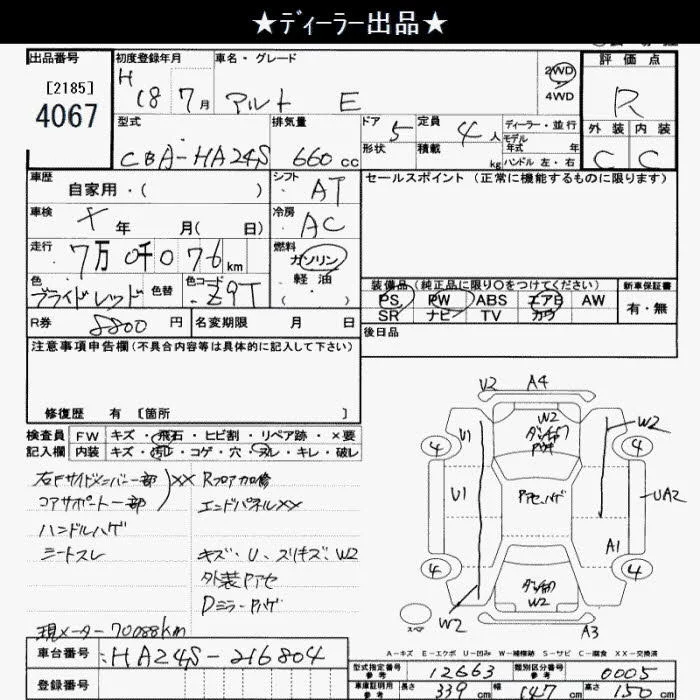 ★ディーラー出品★
出品番号 初度登録年月 車名・グレード 評価点
[2185] 4067
H 18 7月 アルト E 2WD 4WD R
外装 内装
C C
型式 排気量 ドア 定員 ディーラー・並行
CBA-HA24S 660cc 5 4人 モデル年式 年
形状 積載 kg ハンドル 左・右
車歴 自家用・( ) シフト AT セールスポイント (正常に機能するものに限ります)
車検 年 月( 日) 冷房 AC
走行 7万0千076km 燃料 ガソリン・軽油
色 ブライドレッド 色替 色コード Z9T
装備品(純正品に限り○をつけてください) 新車保証書
PS PW ABS エアB AW 有・無
SR ナビ TV カワ
R券 8800円 名変期限 月 日 後日品
注意事項申告欄(不具合内容等は具体的に記入して下さい)
修復歴 有 [箇所 ]
検査員記入欄 FW キズ・飛石・ヒビ割・リペア跡・×要
内装 キズ・汚れ・コゲ・穴・ヌレ・キレ・破レ
右Fサイドメンバー一部 XX Rフロア加修
コアサポート一部 エンドパネルXX
ハンドルハゲ
シートスレ キズ・U、スリキズ、W2
外装Pアセ
Dミラー・Pハゲ
現メーター70088km
V2 A4
W2
U1 W2
4 4
U1 Pアセ、ハゲ UA2
A1
4 4
W2
スペア W2 A3
A-キズ E-エクボ U-凹み W-補修跡 S-サビ C-腐食 XX-交換済
車台番号 HA24S-216804
登録番号
型式指定番号 参考 12663 類別区分番号 参考 0005
車庫証明用 参考 長さ 339cm 幅 147cm 高さ 150cm